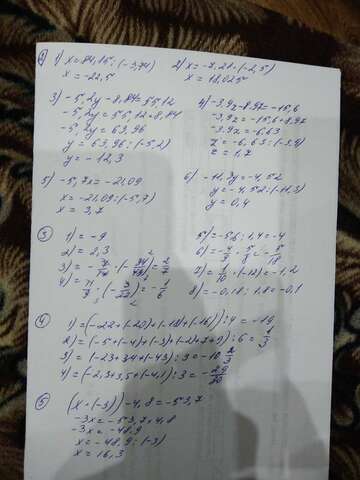 ② 1) x = 84,15 : (-3,74)
x = -22,5
2) x = -7,21 : (-2,5)
x = 18,025
3) -5,2y - 8,84 = 55,12
-5,2y = 55,12 + 8,84
-5,2y = 63,96
y = 63,96 : (-5,2)
y = -12,3
4) -3,9z - 8,97 = -15,6
-3,9z = -15,6 + 8,97
-3,9z = -6,63
z = -6,63 : (-3,9)
z = 1,7
5) -5,7x = -21,09
x = -21,09 : (-5,7)
x = 3,7
6) -11,3y = -4,52
y = -4,52 : (-11,3)
y = 0,4
③ 1) = -9
2) = 2,3
5) = -5,6 : 1,4 = -4
8) = -0,18 : 1,8 = -0,1
④ 1) = (-22 + (-20) + (-18) + (-16)) : 4 = -19
2) = (-5 + (-4) + (-3) + (-2) + 7 + 9) : 6 = 1/3
3) = (-23 + 34 + (-43)) : 3 = -10 2/3
4) = (-2,3 + 3,5 + (-4,1)) : 3 = -29/30
⑤ (x · (-3)) - 4,8 = -53,7
-3x = -53,7 + 4,8
-3x = -48,9
x = -48,9 : (-3)
x = 16,3